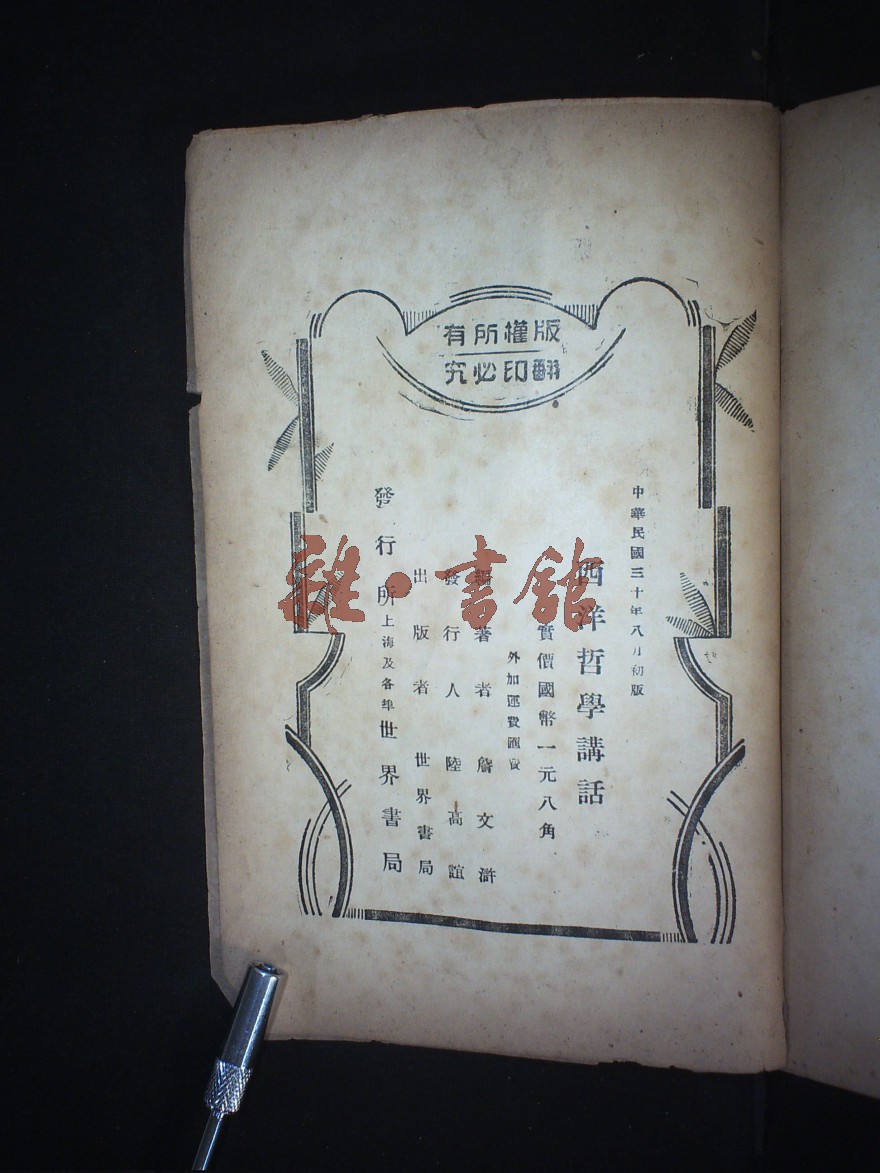 版權所有
翻印必究
中華民國三十年八月初版
西洋哲學講話
實價國幣一元八角
外加運費匯費
編著者 詹文滸
發行人 陸高誼
出版者 世界書局
發行所 上海及各埠 世界書局
雜·書館